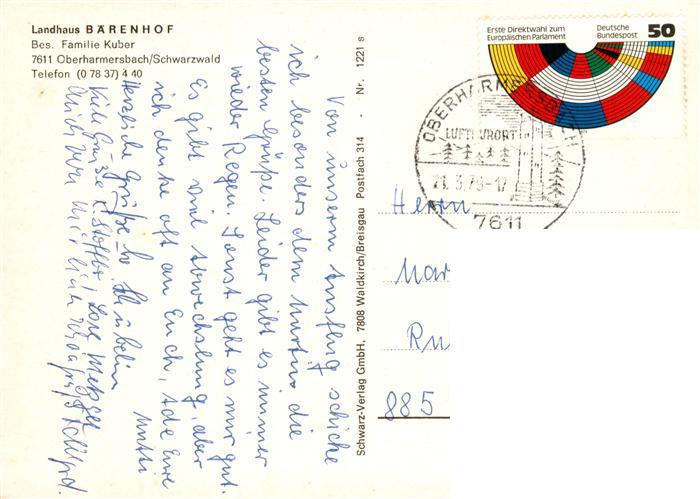 Landhaus BÄRENHOF
Bes. Familie Kuber
7611 Oberharmersbach/Schwarzwald
Telefon (0 78 37) 4 40
Von unserm Ausflug schicke
ich besonders dem Martin die
besten Grüße. Leider gibt es immer
wieder Regen. Sonst geht es mir gut.
Es gibt viel Abwechslung, aber
ich denke oft an Euch, Ade Eure
Mutti
Herzliche Grüße
Viele Grüße Lore Metzger
Schwarz-Verlag GmbH, 7808 Waldkirch/Breisgau Postfach 314 - Nr. 1221 s
Erste Direktwahl zum
Europäischen Parlament
Deutsche
Bundespost
50
OBERHARMERSBACH
LUFTKURORT
21.3.79-17
7611
Herrn
Mar
Ru
885